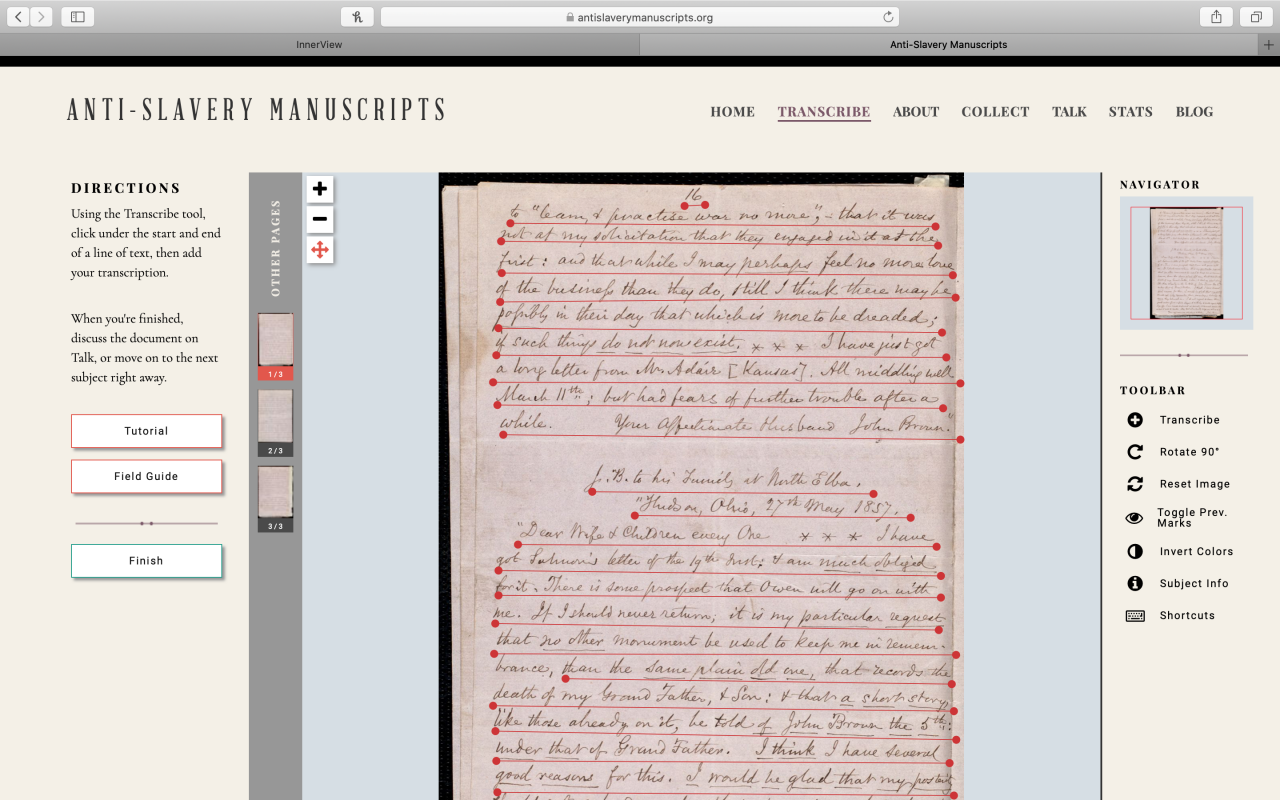 antislaverymanuscripts.org
InnerView
Anti-Slavery Manuscripts
ANTI-SLAVERY MANUSCRIPTS
HOME TRANSCRIBE ABOUT COLLECT TALK STATS BLOG
DIRECTIONS
Using the Transcribe tool,
click under the start and end
of a line of text, then add
your transcription.
When you're finished,
discuss the document on
Talk, or move on to the next
subject right away.
Tutorial
Field Guide
Finish
OTHER PAGES
1/3
2/3
3/3
16
to "learn, & practise war no more"; - that it was
not at my solicitation that they engaged in it at the
first: and that while I may perhaps feel no more love
of the business than they do, still I think there may be
possibly in their day that which is more to be dreaded;
if such things do not now exist. * * * I have just got
a long letter from Mr Adair [Kansas]. All middling well
March 11th; but had fears of further trouble after a
while. Your Affectionate Husband John Brown."
J. B. to his Family at North Elba.
"Hudson, Ohio, 27th May 1857.
"Dear Wife & Children every One * * * I have
got Salmon's letter of the 19th Inst: & am much obliged
for it. There is some prospect that Owen will go on with
me. If I should never return; it is my particular request
that no other monument be used to keep me in remem-
brance, than the same plain old one, that records the
death of my Grand Father, & Son: & that a short story,
like those already on it, be told of John Brown the 5th:
under that of Grand Father. I think I have several
good reasons for this. I would be glad that my posterity
NAVIGATOR
TOOLBAR
Transcribe
Rotate 90°
Reset Image
Toggle Prev.
Marks
Invert Colors
Subject Info
Shortcuts